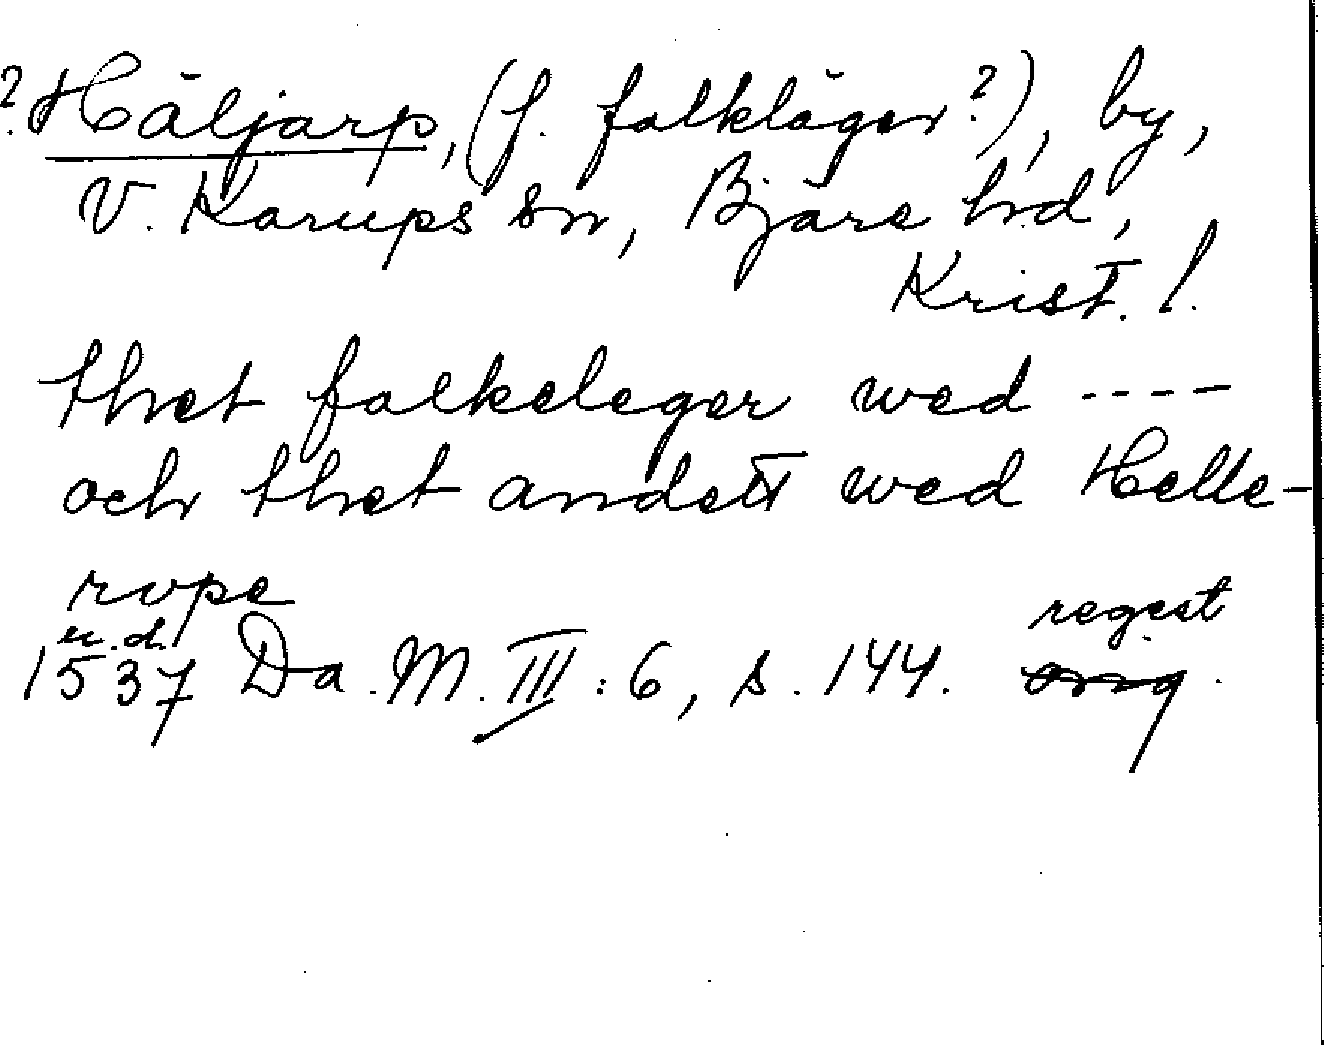 ? Häljarp, (f. folkläger?), by,
V. Karups sn, Bjäre hd,
Krist. l.
thet folkeleger wed ----
och thet andett wed Helle-
rope
u.d. regest
1537 Da. M. III : 6, s. 144.